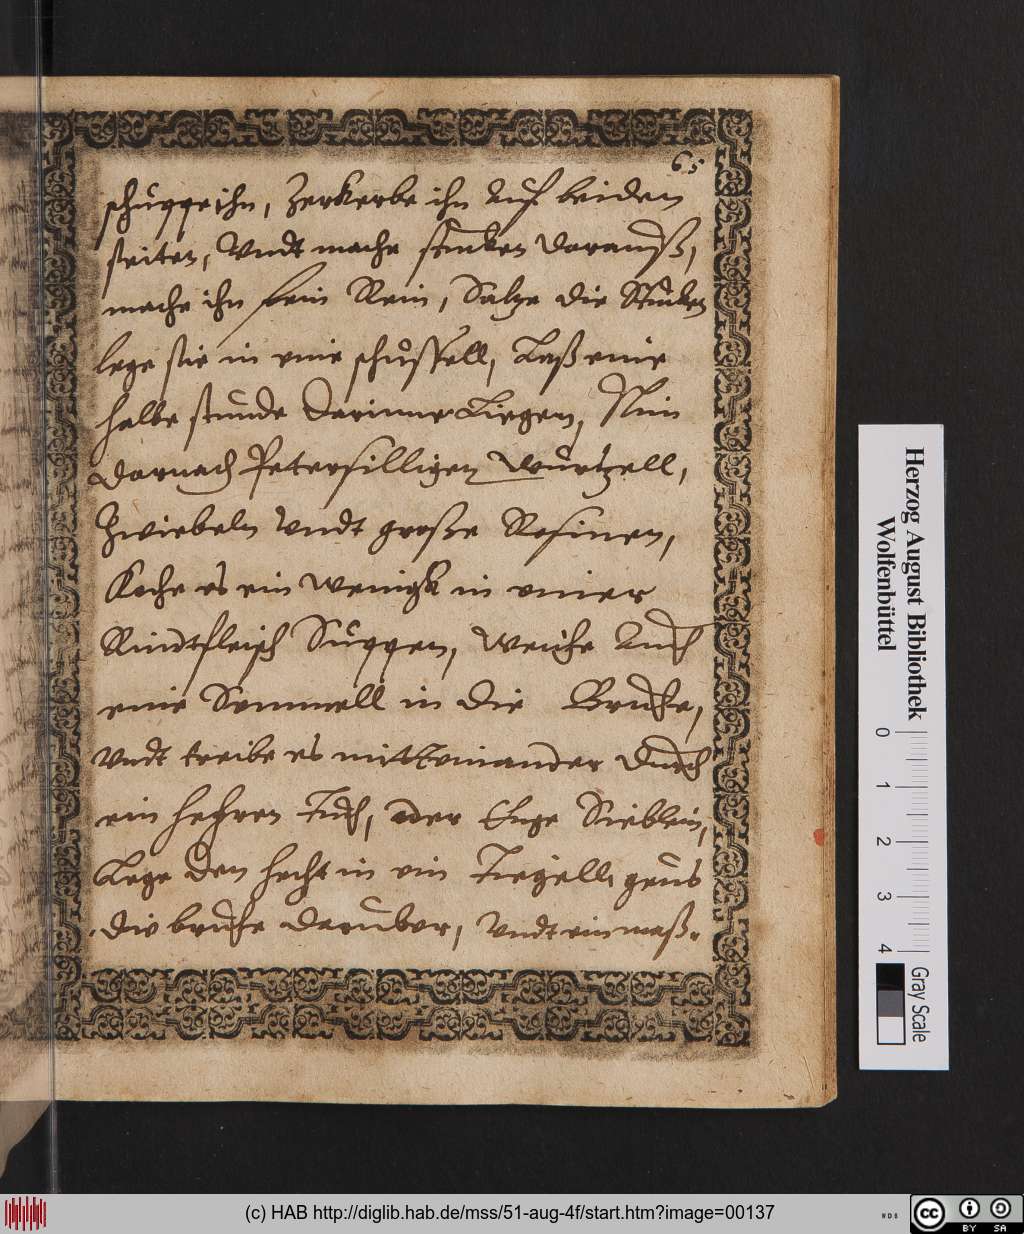 65
schuppe ihn, Zerkerbe ihn Auf beiden
seiten, Vndt mache stucken darauß,
mache ihn fein Rein, Saltze die Stucken
lege sie in eine schüssell, Laß eine
halbe stunde darinne Liegen, Nim
darnach Petersilligen würtzell,
Zwiebeln Vndt große Rosinen,
Koche es ein wenigk in einer
Rindtfleisch Suppen, weiche Auch
eine Semmell in die Bruhe,
Vndt treibe es mitt Einander durch
ein hehren Tuch, oder Enge Sieblein,
Lege den hecht in ein Tiegell, geus
die bruhe daruber, Vndt ein maß
Herzog August Bibliothek
Wolfenbüttel
0 1 2 3 4
Gray Scale
(c) HAB http://diglib.hab.de/mss/51-aug-4f/start.htm?image=00137
WDB
cc BY SA